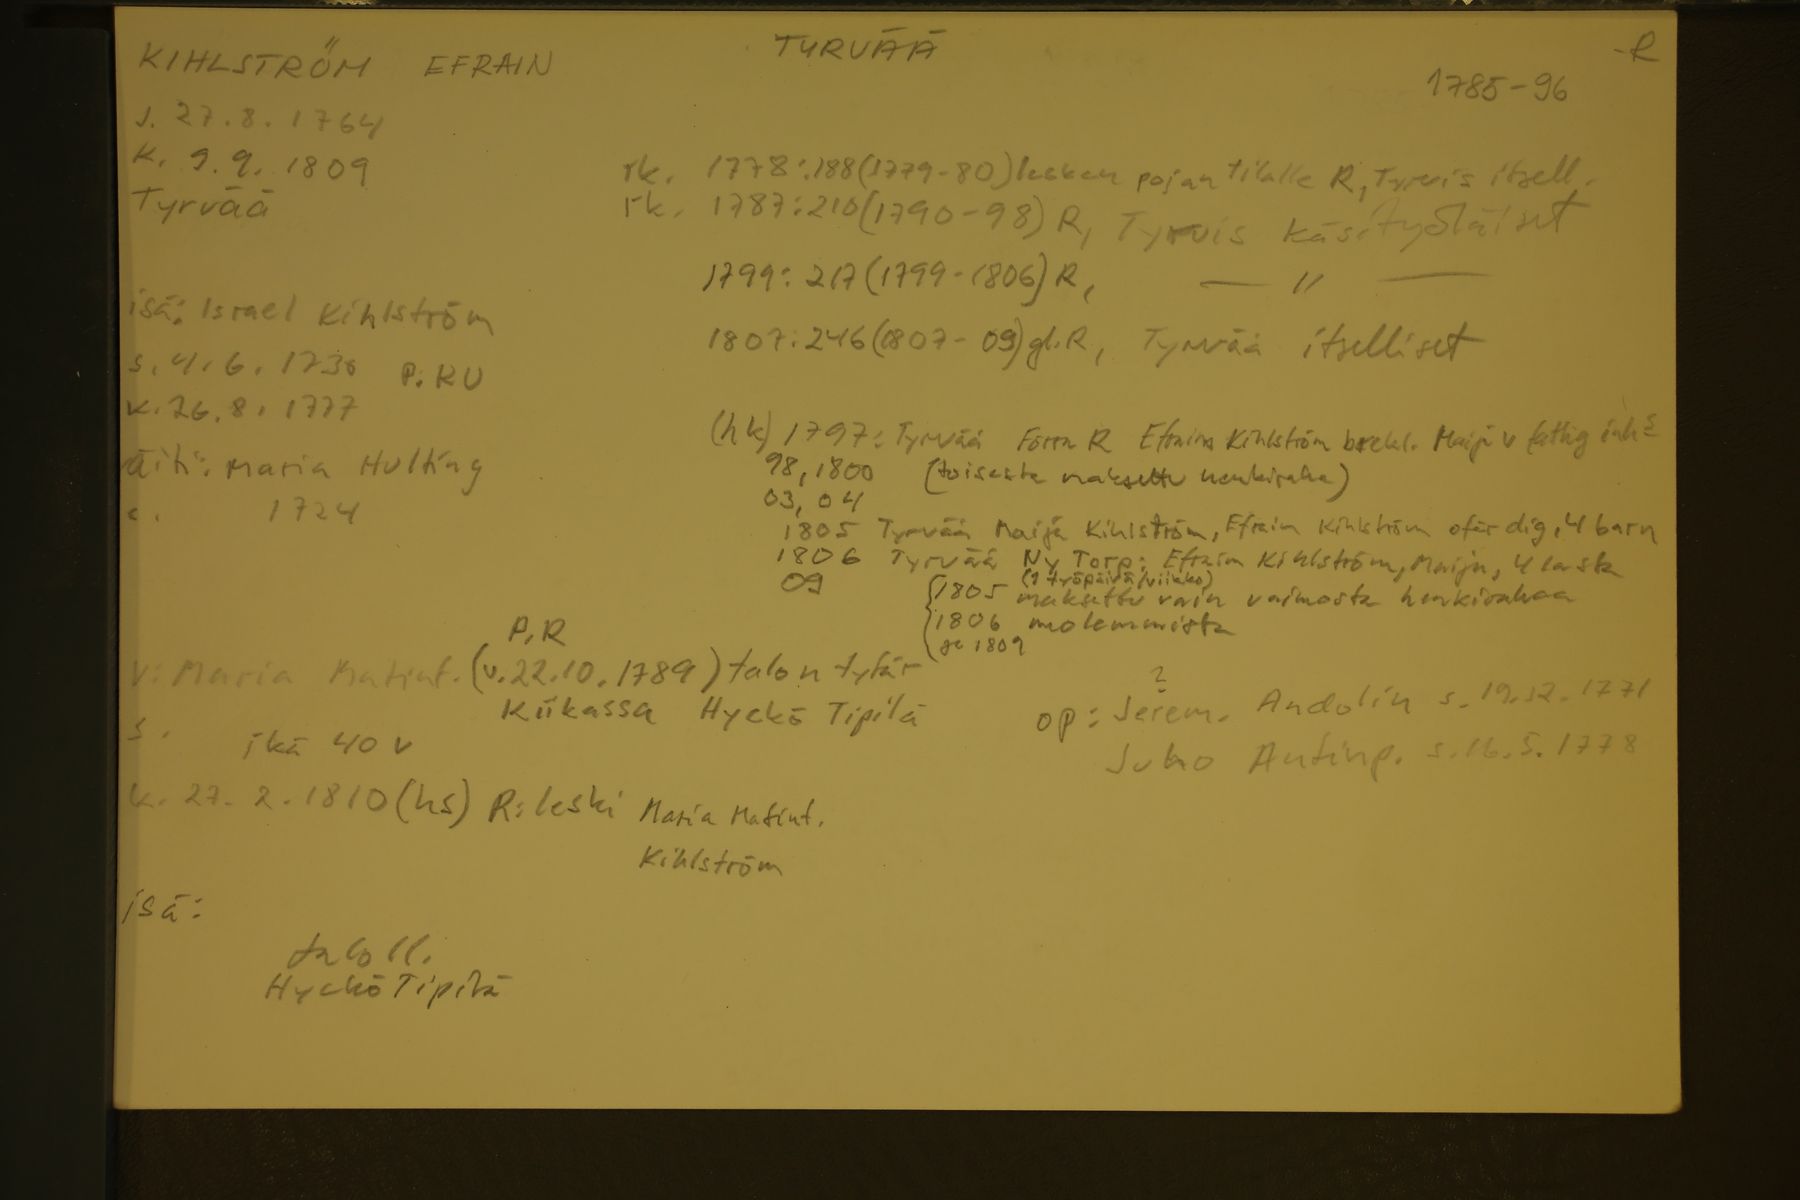 KIHLSTRÖM EFRAIN
TYRVÄÄ
-R
1785-96
s. 27.8.1764
k. 9.9.1809
Tyrvää
rk. 1778:188(1779-80) lesken pojan tilalle R, Tyrvis itsell.
rk. 1787:210(1790-98) R, Tyrvis käsityöläiset
1799:217(1799-1806) R, — " —
1807:246(1807-09) gl.R, Tyrvää itselliset
isä: Israel Kihlström
s. 4.6.1730 P:RU
k. 26.8.1777
äiti: Maria Hulting
1724
(hk) 1797: Tyrvää Förra R Efraim Kihlström Maija v fattig
98, 1800 (toisesta maksettu henkiraha)
03, 04
1805 Tyrvää Maija Kihlström, Efraim Kihlström ofärdig, 4 barn
1806 Tyrvää Ny Torp: Efraim Kihlström, Maija, 4 lasta
09
(1 työpäivä/viikko)
1805 maksettu vain vaimosta henkirahaa
1806 molemmista
1809
P, R
v: Maria Matint. (v. 22.10.1789) talon tytär
Kiikassa Hyckö Tipilä
s.
ikä 40 v
k. 27.2.1810 (hs) R: leski Maria Matint.
Kihlström
?
op: Jerem. Andolin s. 19.12.1771
Juho Antinp. s. 16.5.1778
isä:
taloll.
Hyckö Tipilä